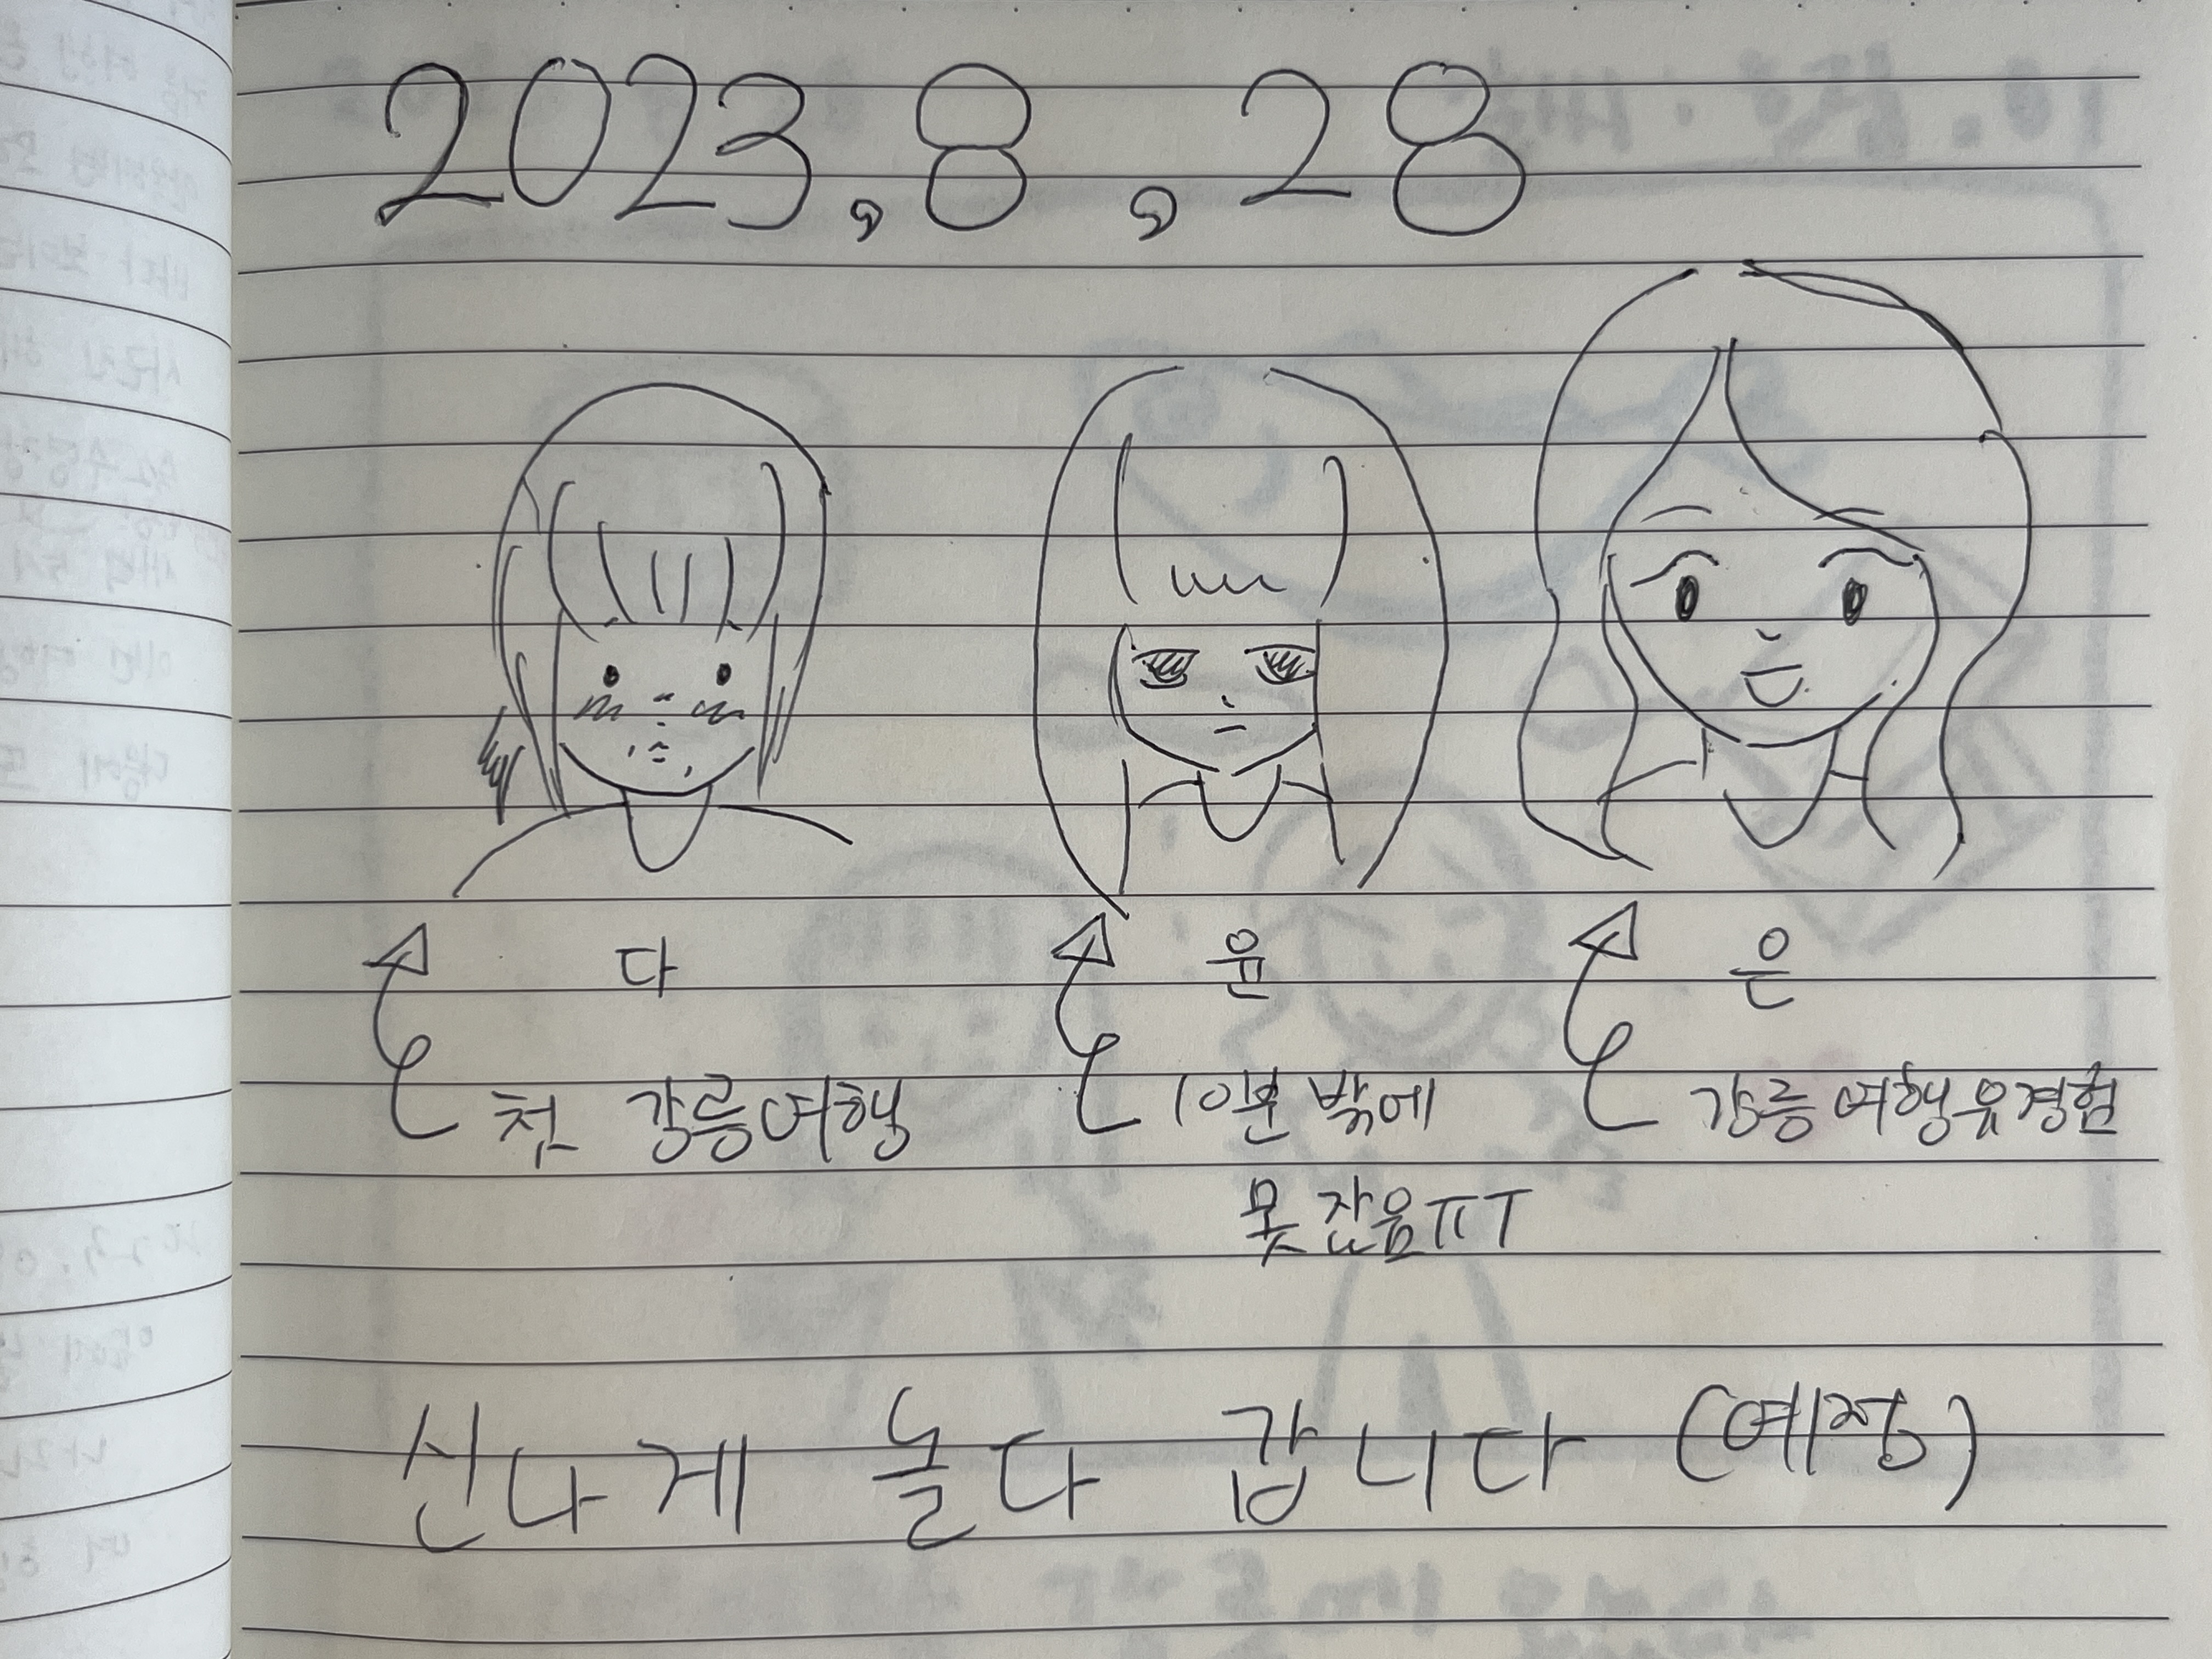 2023, 8, 28
다 윤 은
첫 강릉여행 10분 밖에 강릉여행유경험
못 잤음ㅠㅜ
신나게 놀다 갑니다 (예정)